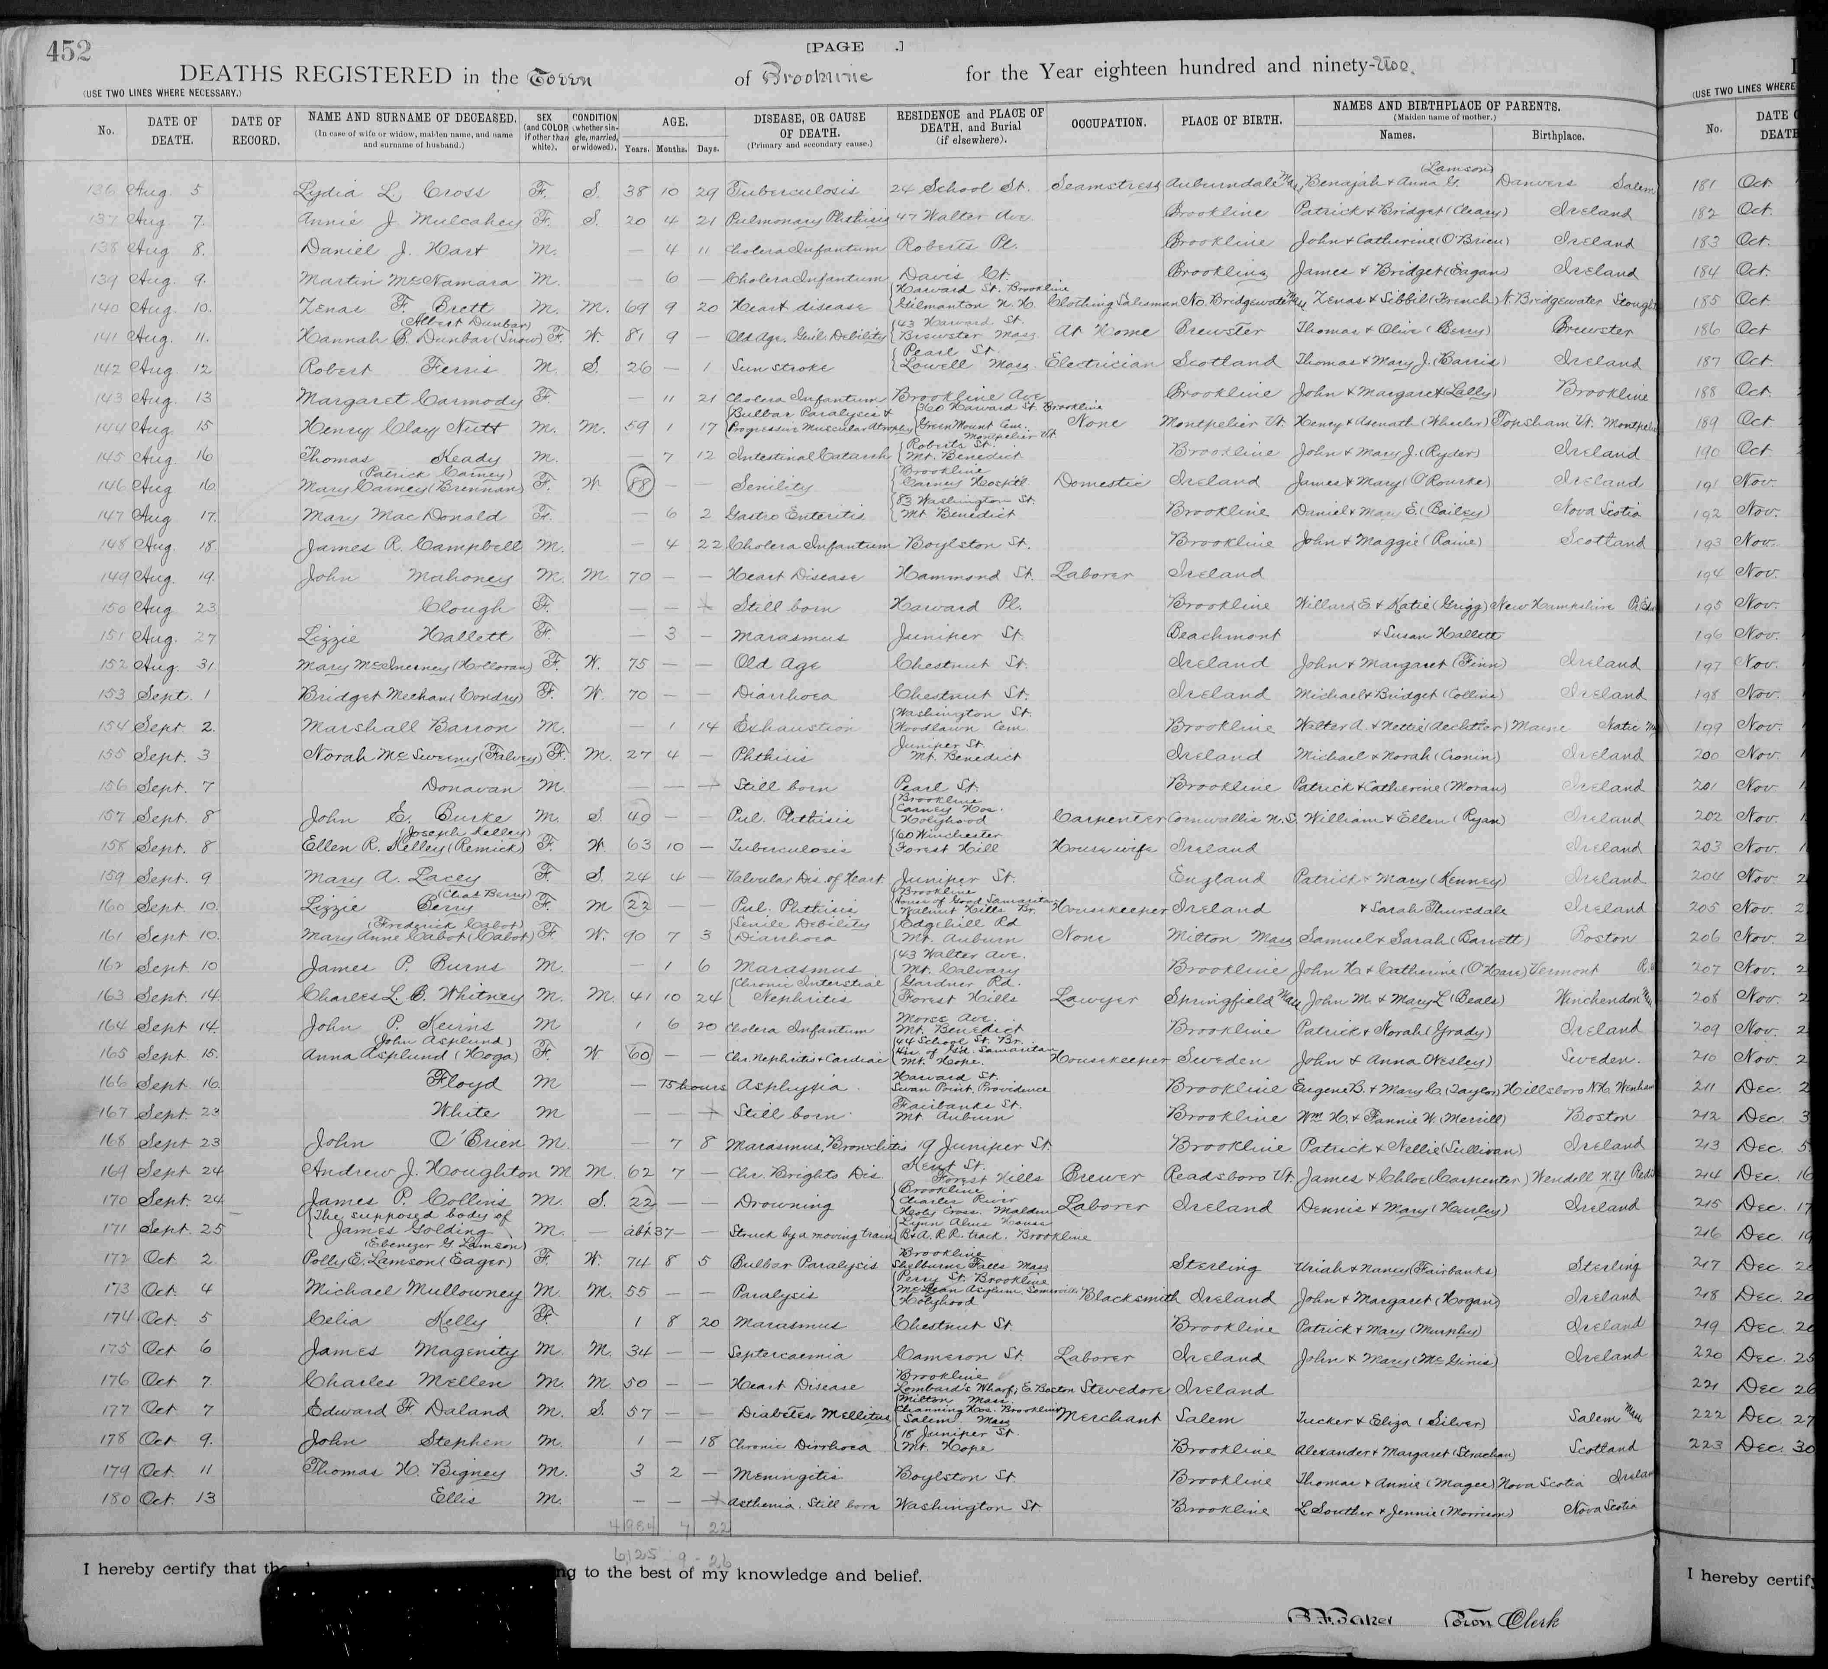 452
[PAGE .]
DEATHS REGISTERED in the Town of Brookline for the Year eighteen hundred and ninety-two.
(USE TWO LINES WHERE NECESSARY.)
No. DATE OF DEATH. DATE OF RECORD. NAME AND SURNAME OF DECEASED. (In case of wife or widow, maiden name, and name and surname of husband.) SEX (and COLOR if other than white). CONDITION (whether single, married, or widowed). AGE. Years. Months. Days. DISEASE, OR CAUSE OF DEATH. (Primary and secondary cause.) RESIDENCE and PLACE OF DEATH, and Burial (if elsewhere). OCCUPATION. PLACE OF BIRTH. NAMES AND BIRTHPLACE OF PARENTS. (Maiden name of mother.) Names. Birthplace.
136 Aug 5 Lydia L. Cross F. S. 38 10 29 Tuberculosis 24 School St. Seamstress Auburndale Mass Benajah & Anna G. (Lamson) Danvers Salem
137 Aug 7. Annie J. Mulcahey F. S. 20 4 21 Pulmonary Phthisis 47 Walter Ave. Brookline Patrick & Bridget (Cleary) Ireland
138 Aug 8. Daniel J. Hart M. — 4 11 Cholera Infantum Roberts Pl. Brookline John & Catherine (O'Brien) Ireland
139 Aug 9. Martin McNamara M. — 6 — Cholera Infantum Davis Ct. Brookline James & Bridget (Eagan) Ireland
140 Aug 10. Zenas F. Brett M. M. 69 9 20 Heart disease Harvard St. Brookline Gilmanton N.H. Clothing Salesman No. Bridgewater Zenas & Sibbil (French) N. Bridgewater
141 Aug. 11. Hannah B. Dunbar (Snow) (Albert Dunbar) F. W. 81 9 — Old Age, Genl. Debility 43 Harvard St. Brewster Mass. At Home Brewster Thomas & Olive (Berry) Brewster
142 Aug 12 Robert Ferris M. S. 26 — 1 Sun stroke Pearl St. Lowell Mass. Electrician Scotland Thomas & Mary J. (Barris) Ireland
143 Aug. 13 Margaret Carmody F. — 11 21 Cholera Infantum Brookline Ave Brookline John & Margaret (Lally) Brookline
144 Aug. 15 Henry Clay Nutt M. M. 59 1 17 Bulbar Paralysis & Progressive Muscular Atrophy 360 Harvard St. Brookline Green Mount Cem. Montpelier Vt. None Montpelier Vt. Henry & Asenath (Wheeler) Topsham Vt.
145 Aug 16 Thomas Keady M. — 7 12 Intestinal Catarrh Roberts St. Mt. Benedict Brookline John & Mary J. (Ryder) Ireland
146 Aug 16. Mary Carney (Brennan) (Patrick Carney) F. W. 88 — — Senility Brookline Carney Hospital Domestic Ireland James & Mary (O'Rourke) Ireland
147 Aug 17. Mary MacDonald F. — 6 2 Gastro Enteritis 83 Washington St. Mt. Benedict Brookline Daniel & Mary E. (Bailey) Nova Scotia
148 Aug. 18. James R. Campbell M. — 4 22 Cholera Infantum Boylston St. Brookline John & Maggie (Raine) Scotland
149 Aug. 19. John Mahoney M. M. 70 — — Heart Disease Hammond St. Laborer Ireland
150 Aug. 23 Clough F. — — Still born Harvard Pl. Brookline Willard E. & Katie (Grigg) New Hampshire
151 Aug. 27 Lizzie Hallett F. — 3 — Marasmus Juniper St. Beachmont & Susan Hallett
152 Aug. 31. Mary McInerney (Holloran) F. W. 75 — — Old Age Chestnut St. Ireland John & Margaret (Finn) Ireland
153 Sept. 1 Bridget Mechan (Condry) F. W. 70 — — Diarrhoea Chestnut St. Ireland Michael & Bridget (Collins) Ireland
154 Sept. 2. Marshall Barron M. — 1 14 Exhaustion Washington St. Woodlawn Cem. Brookline Walter A. & Nettie Maine Natic
155 Sept. 3 Norah McSweeny (Falvey) F. M. 27 4 — Phthisis Juniper St. Mt. Benedict Ireland Michael & Norah (Cronin) Ireland
156 Sept. 7 Donavan M. — — Still born Pearl St. Brookline Patrick & Catherine (Moran) Ireland
157 Sept. 8 John E. Burke M. S. 40 — — Pul. Phthisis Brookline Carney Hos. Holyhood Carpenter Cornwallis N.S. William & Ellen (Ryan) Ireland
158 Sept. 8 Ellen R. Kelley (Remick) (Joseph Kelley) F. W. 63 10 — Tuberculosis 60 Winchester Forest Hill Housewife Ireland Ireland
159 Sept. 9 Mary A. Lacey F. S. 24 4 — Valvular Dis. of Heart Juniper St. England Patrick & Mary (Kenney) Ireland
160 Sept. 10. Lizzie Berry (Chas Berry) F. M 22 — — Pul. Phthisis Brookline House of Good Samaritan Walnut Hills Br. Housekeeper Ireland & Sarah Thursdale Ireland
161 Sept. 10. Mary Anne Cabot (Cabot) (Frederick Cabot) F. W. 90 7 3 Senile Debility Diarrhoea Edgehill Rd Mt. Auburn None Milton Mass Samuel & Sarah (Barrett) Boston
162 Sept. 10 James P. Burns M. — 1 6 Marasmus 43 Walter Ave. Mt. Calvary Brookline John H. & Catherine (O'Hare) Vermont
163 Sept. 14. Charles L. B. Whitney M. M. 41 10 24 Chronic Interstitial Nephritis Gardner Rd. Forest Hills Lawyer Springfield Mass John M. & Mary L. (Beals) Winchendon
164 Sept 14. John P. Keirns M 1 6 20 Cholera Infantum Morse Ave. Mt. Benedict Brookline Patrick & Norah (Grady) Ireland
165 Sept. 15. Anna Asplund (Hoga) (John Asplund) F. W 60 — — Chr. Nephritis & Cardiac 44 School St. Br. Hse. of Gd. Samaritan Mt. Hope Housekeeper Sweden John & Anna (Wesley) Sweden.
166 Sept. 16. Floyd M — 75 hours Asphyxia Harvard St. Swan Point, Providence Brookline Eugene B. & Mary C. (Taylor) Hillsboro N.H. Wenham
167 Sept. 23 White M — — Still born Fairbanks St. Mt Auburn Brookline Wm H. & Fannie W. (Merrill) Boston
168 Sept 23 John O'Brien M. — 7 8 Marasmus, Bronchitis 19 Juniper St. Brookline Patrick & Nellie (Sullivan) Ireland
169 Sept. 24 Andrew J. Houghton M M. 62 7 — Chr. Brights Dis Kent St. Forest Hills Brewer Readsboro Vt. James & Chloe (Carpenter) Wendell N.Y
170 Sept. 24 James P. Collins M. S. 22 — — Drowning Brookline Charles River Holy Cross, Malden Laborer Ireland Dennis & Mary (Hurley) Ireland
171 Sept. 25 The supposed body of James Golding M. — abt 37 — Struck by a moving train Lynn Alms House B & A. R.R. track. Brookline
172 Oct 2. Polly E. Lamson (Eager) (Ebenezer G Lamson) F. W. 74 8 5 Bulbar Paralysis Brookline Shelburne Falls Mass Sterling Uriah & Nancy (Fairbanks) Sterling
173 Oct 4 Michael Mullowney M M. 55 — — Paralysis Perry St. Brookline McLean Asylum, Somerville Holyhood Blacksmith Ireland John & Margaret (Hogan) Ireland
174 Oct. 5 Celia Kelly F. 1 8 20 Marasmus Chestnut St. Brookline Patrick & Mary (Murphy) Ireland
175 Oct 6 James Magenity M. M. 34 — — Septercaemia Cameron St. Laborer Ireland John & Mary (McGinis) Ireland
176 Oct 7. Charles Mellen M. M. 50 — — Heart Disease Brookline Lombard's Wharf, E. Boston Stevedore Ireland
177 Oct 7 Edward F. Daland M. S. 57 — — Diabetes Mellitus Milton Mass. Channing Hos. Brookline Salem Mass Merchant Salem Tucker & Eliza (Silver) Salem Mass
178 Oct 9. John Stephen M. 1 — 18 Chronic Dirrhoea 18 Juniper St. Mt. Hope Brookline Alexander & Margaret (Strachan) Scotland
179 Oct. 11 Thomas H. Bigney M. 3 2 — Meningitis Boylston St. Brookline Thomas & Annie (Magee) Nova Scotia
180 Oct 13 Ellis M. — — Asthenia. Still born Washington St. Brookline L. Souther & Jennie (Morrison) Nova Scotia
4 984 7 22
6125 9 - 26
I hereby certify that the
ng to the best of my knowledge and belief.
B.F. Baker Town Clerk
(USE TWO LINES WHERE
No. DATE O DEATH
181 Oct
182 Oct.
183 Oct.
184 Oct.
185 Oct
186 Oct
187 Oct
188 Oct.
189 Oct
190 Oct
191 Nov.
192 Nov.
193 Nov.
194 Nov.
195 Nov.
196 Nov.
197 Nov.
198 Nov.
199 Nov.
200 Nov.
201 Nov
202 Nov.
203 Nov.
204 Nov
205 Nov.
206 Nov.
207 Nov.
208 Nov.
209 Nov.
210 Nov
211 Dec.
212 Dec.
213 Dec.
214 Dec. 16
215 Dec. 17
216 Dec. 19
217 Dec.
218 Dec. 20
219 Dec.
220 Dec. 25
221 Dec 26
222 Dec. 27
223 Dec. 30
I hereby certify